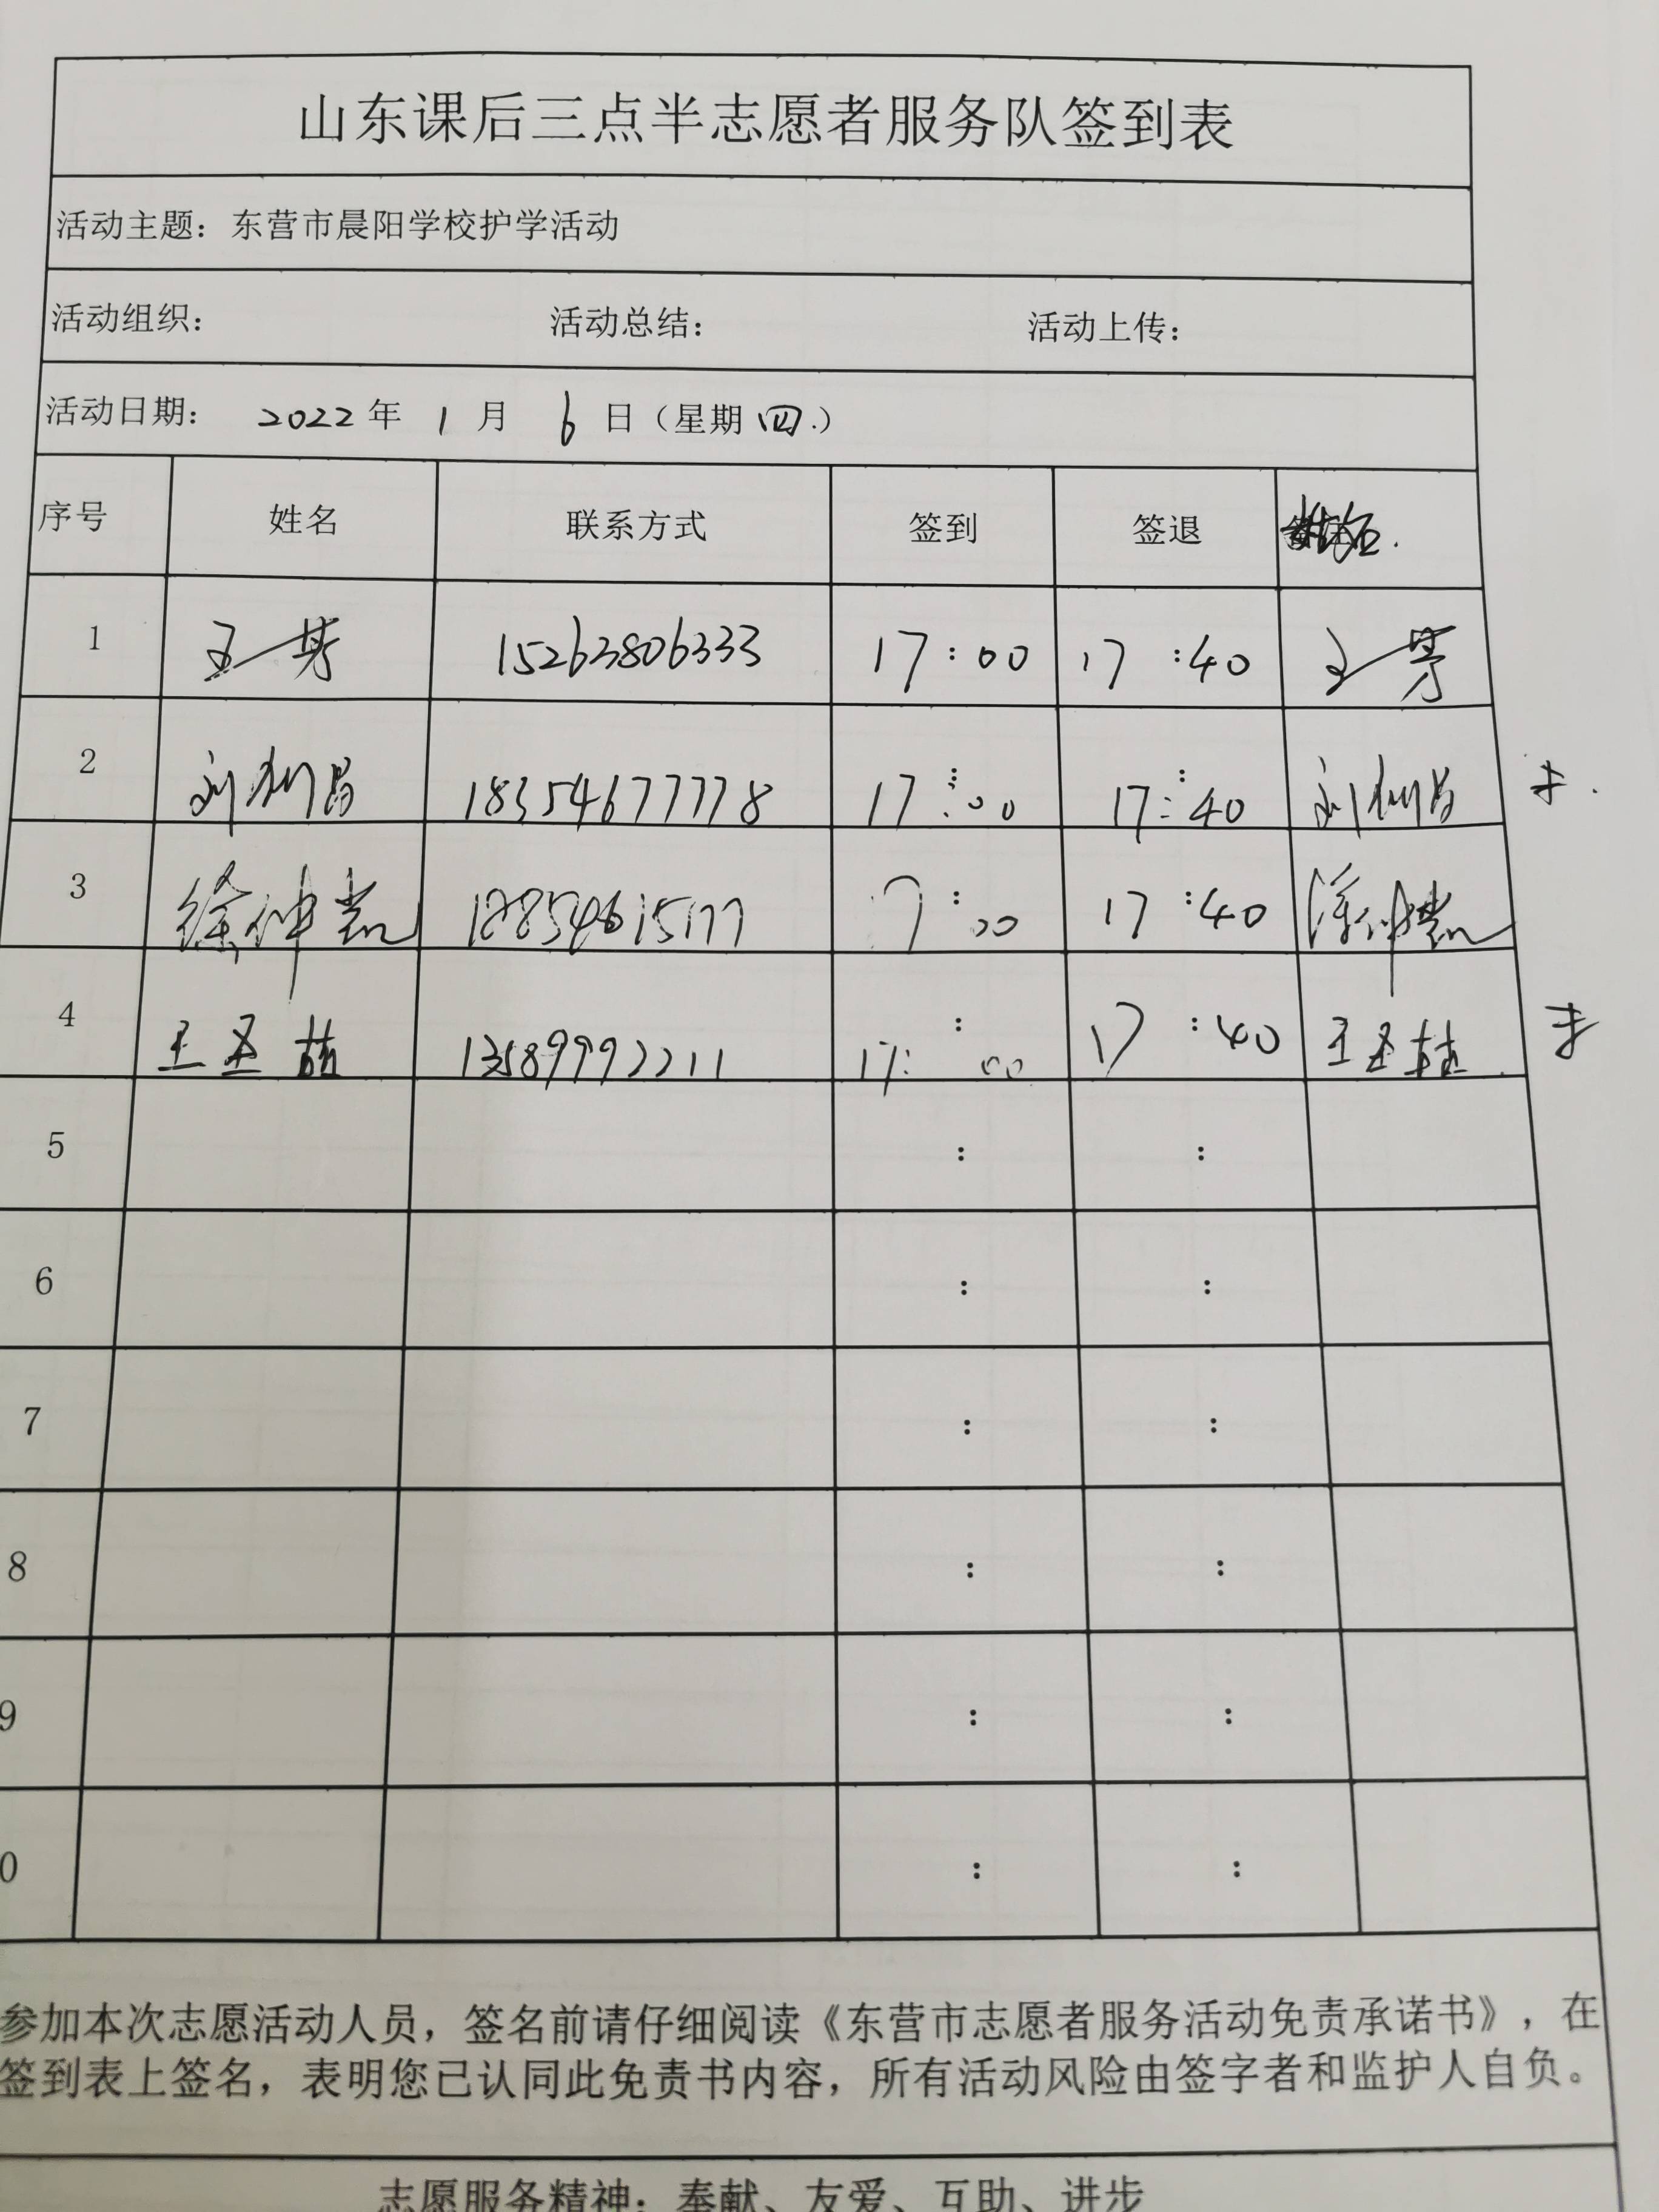 山东课后三点半志愿者服务队签到表
活动主题：东营市晨阳学校护学活动
活动组织： 活动总结： 活动上传：
活动日期： 2022年 1月 6日（星期四.）
序号 姓名 联系方式 签到 签退
1 王芳 15263806333 17:00 17:40 王芳
2 刘 18354677778 17:00 17:40 刘
3 徐仲凯 17:40 徐仲凯
4 王圣 13589992211 17:00 17:40 王圣
5 : :
6 : :
7 : :
8 : :
9 : :
0 : :
参加本次志愿活动人员，签名前请仔细阅读《东营市志愿者服务活动免责承诺书》，在
签到表上签名，表明您已认同此免责书内容，所有活动风险由签字者和监护人自负。
志愿服务精神：奉献、友爱、互助、进步